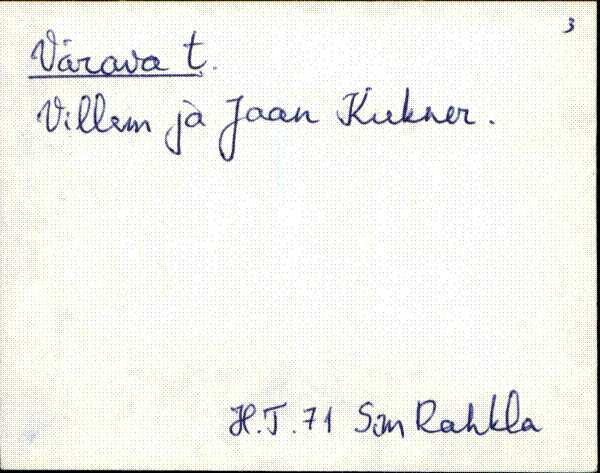 3
Värava t.
Villem ja Jaan Kiekner.
H.T. 71 Sim Rahkla